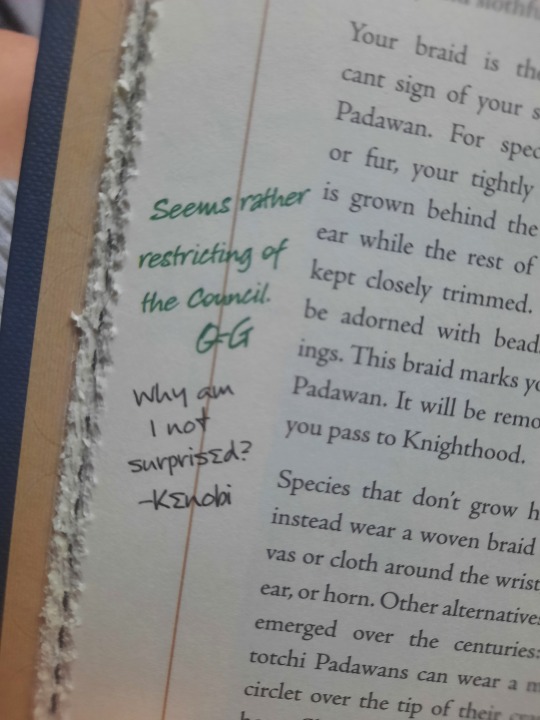 Your braid is the
cant sign of your s
Padawan. For spec
or fur, your tightly
is grown behind the
ear while the rest of
kept closely trimmed.
be adorned with bead
ings. This braid marks yo
Padawan. It will be remo
you pass to Knighthood.
Species that don't grow h
instead wear a woven braid
vas or cloth around the wrist
ear, or horn. Other alternative
emerged over the centuries:
totchi Padawans can wear a m
circlet over the tip of their
Seems rather
restricting of
the Council.
Q-G
Why am
I not
surprised?
-Kenobi